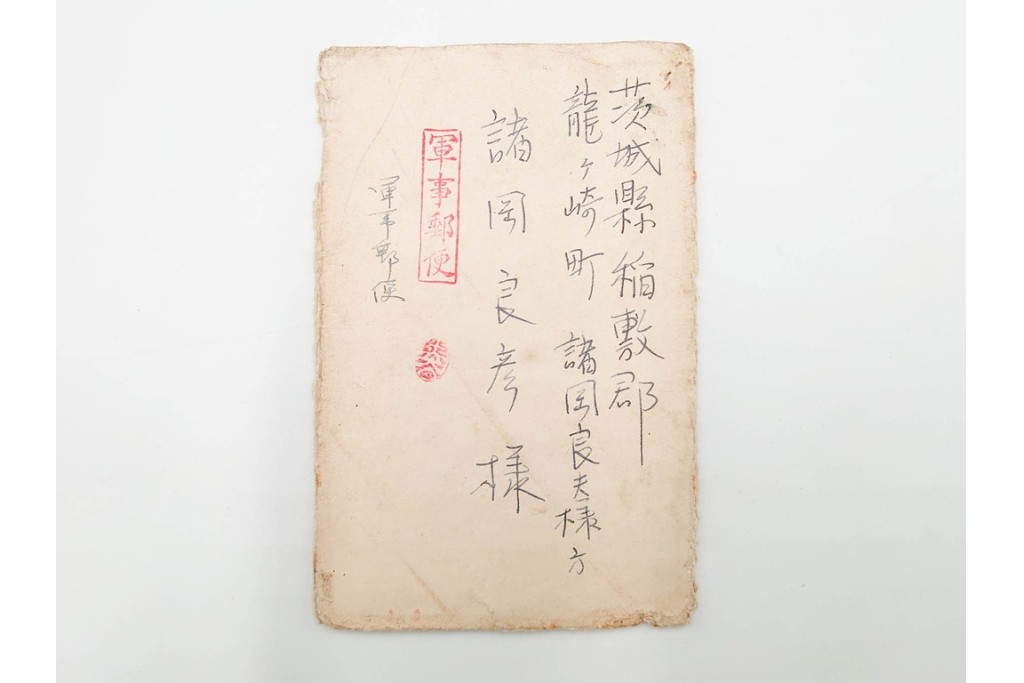 茨城縣稲敷郡
龍ヶ崎町 諸岡良夫様方
諸岡良彦様
軍事郵便
軍事郵便